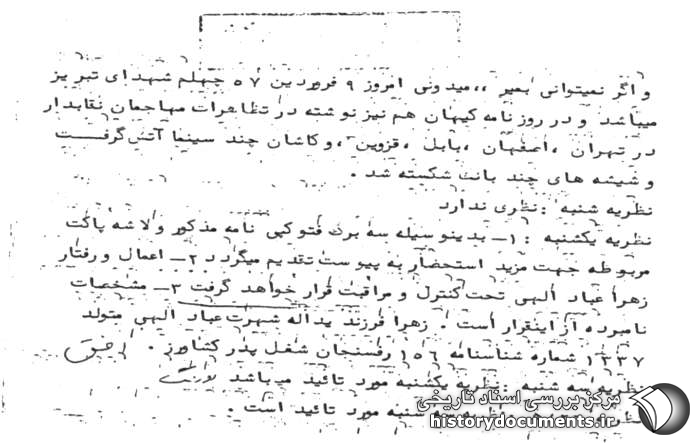 و اگر نمیتوانی بمیر ،،میدونی امروز ۹ فروردین ۵۷ چهلم شهدای تبریز
میباشد و در روزنامه کیهان هم نیز نوشته در تظاهرات مهاجمان نقابدار
در تهران ،اصفهان ،بابل ،قزوین ،و کاشان چند سینما آتش گرفت
و شیشه های چند بانک شکسته شد .
نظریه شنبه :نظری ندارد
نظریه یکشنبه :۱ــ بدینوسیله سه برگ فتوکپی نامه مذکور و لاشه پاکت
مربوطه جهت مزید استحضار به پیوست تقدیم میگردد ۲ــ اعمال و رفتار
زهرا عباد الهی تحت کنترل و مراقبت قرار خواهد گرفت ۳ــ مشخصات
نامبرده از اینقرار است . زهرا فرزند یداله شهرت عباد الهی متولد
۱۳۳۷ شماره شناسنامه ۱۵۶ رفسنجان شغل پدر کشاورز .
نظریه سه شنبه :نظریه یکشنبه مورد تائید میباشد
سه شنبه مورد تائید است .
مرکز بررسی اسناد تاریخی
historydocuments.ir